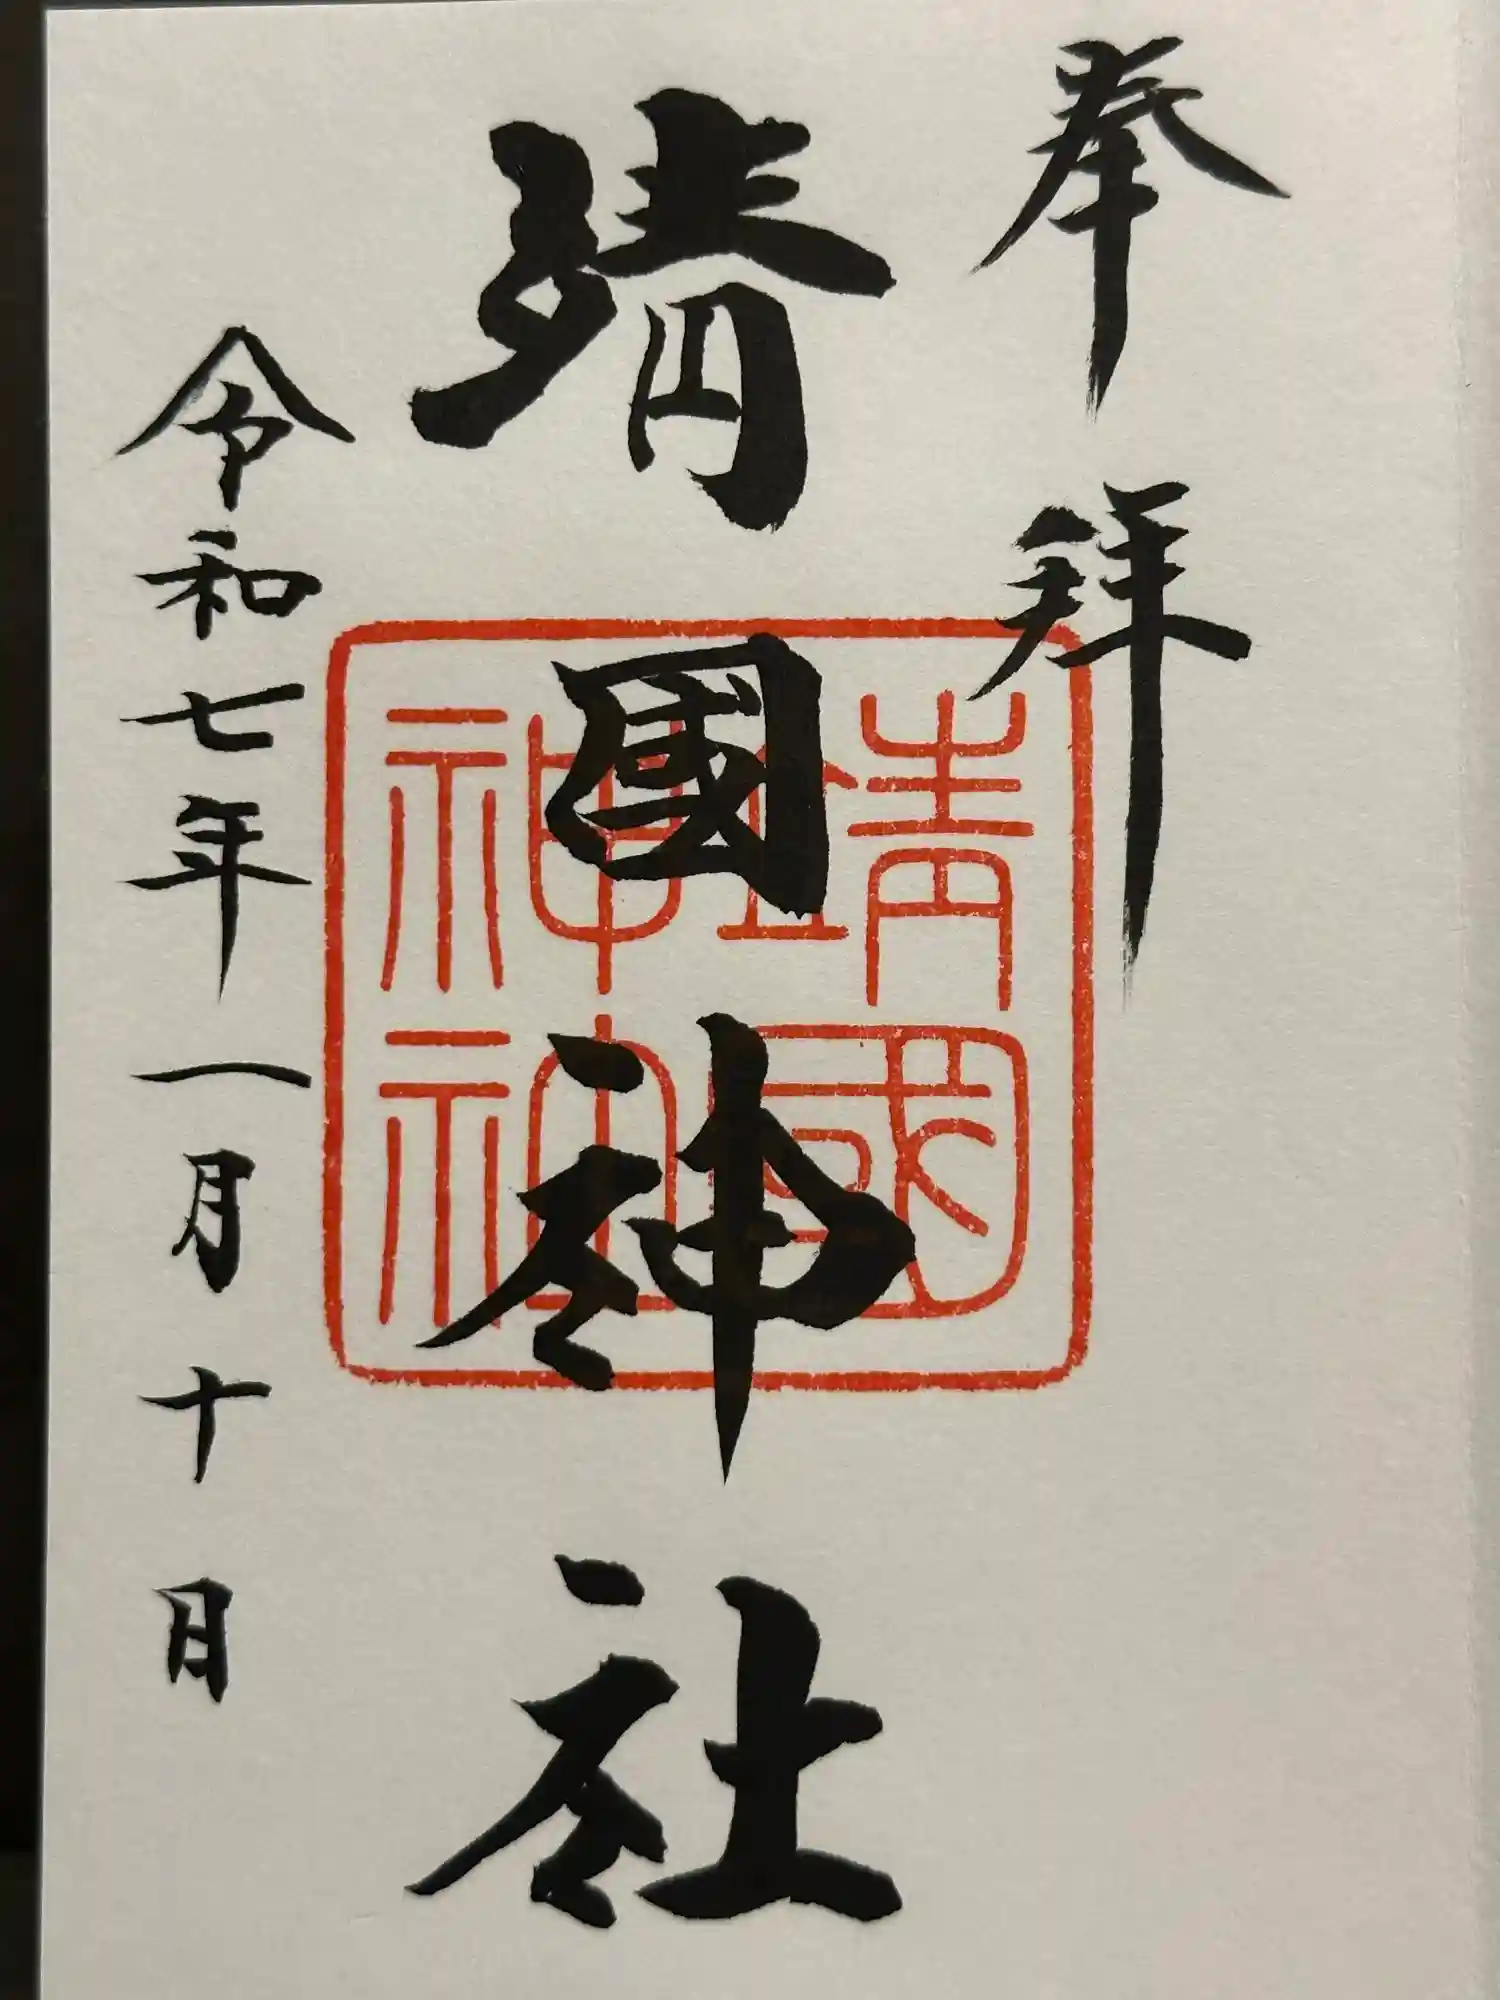 奉拝
靖國神社
靖國
神社
令和七年一月十日